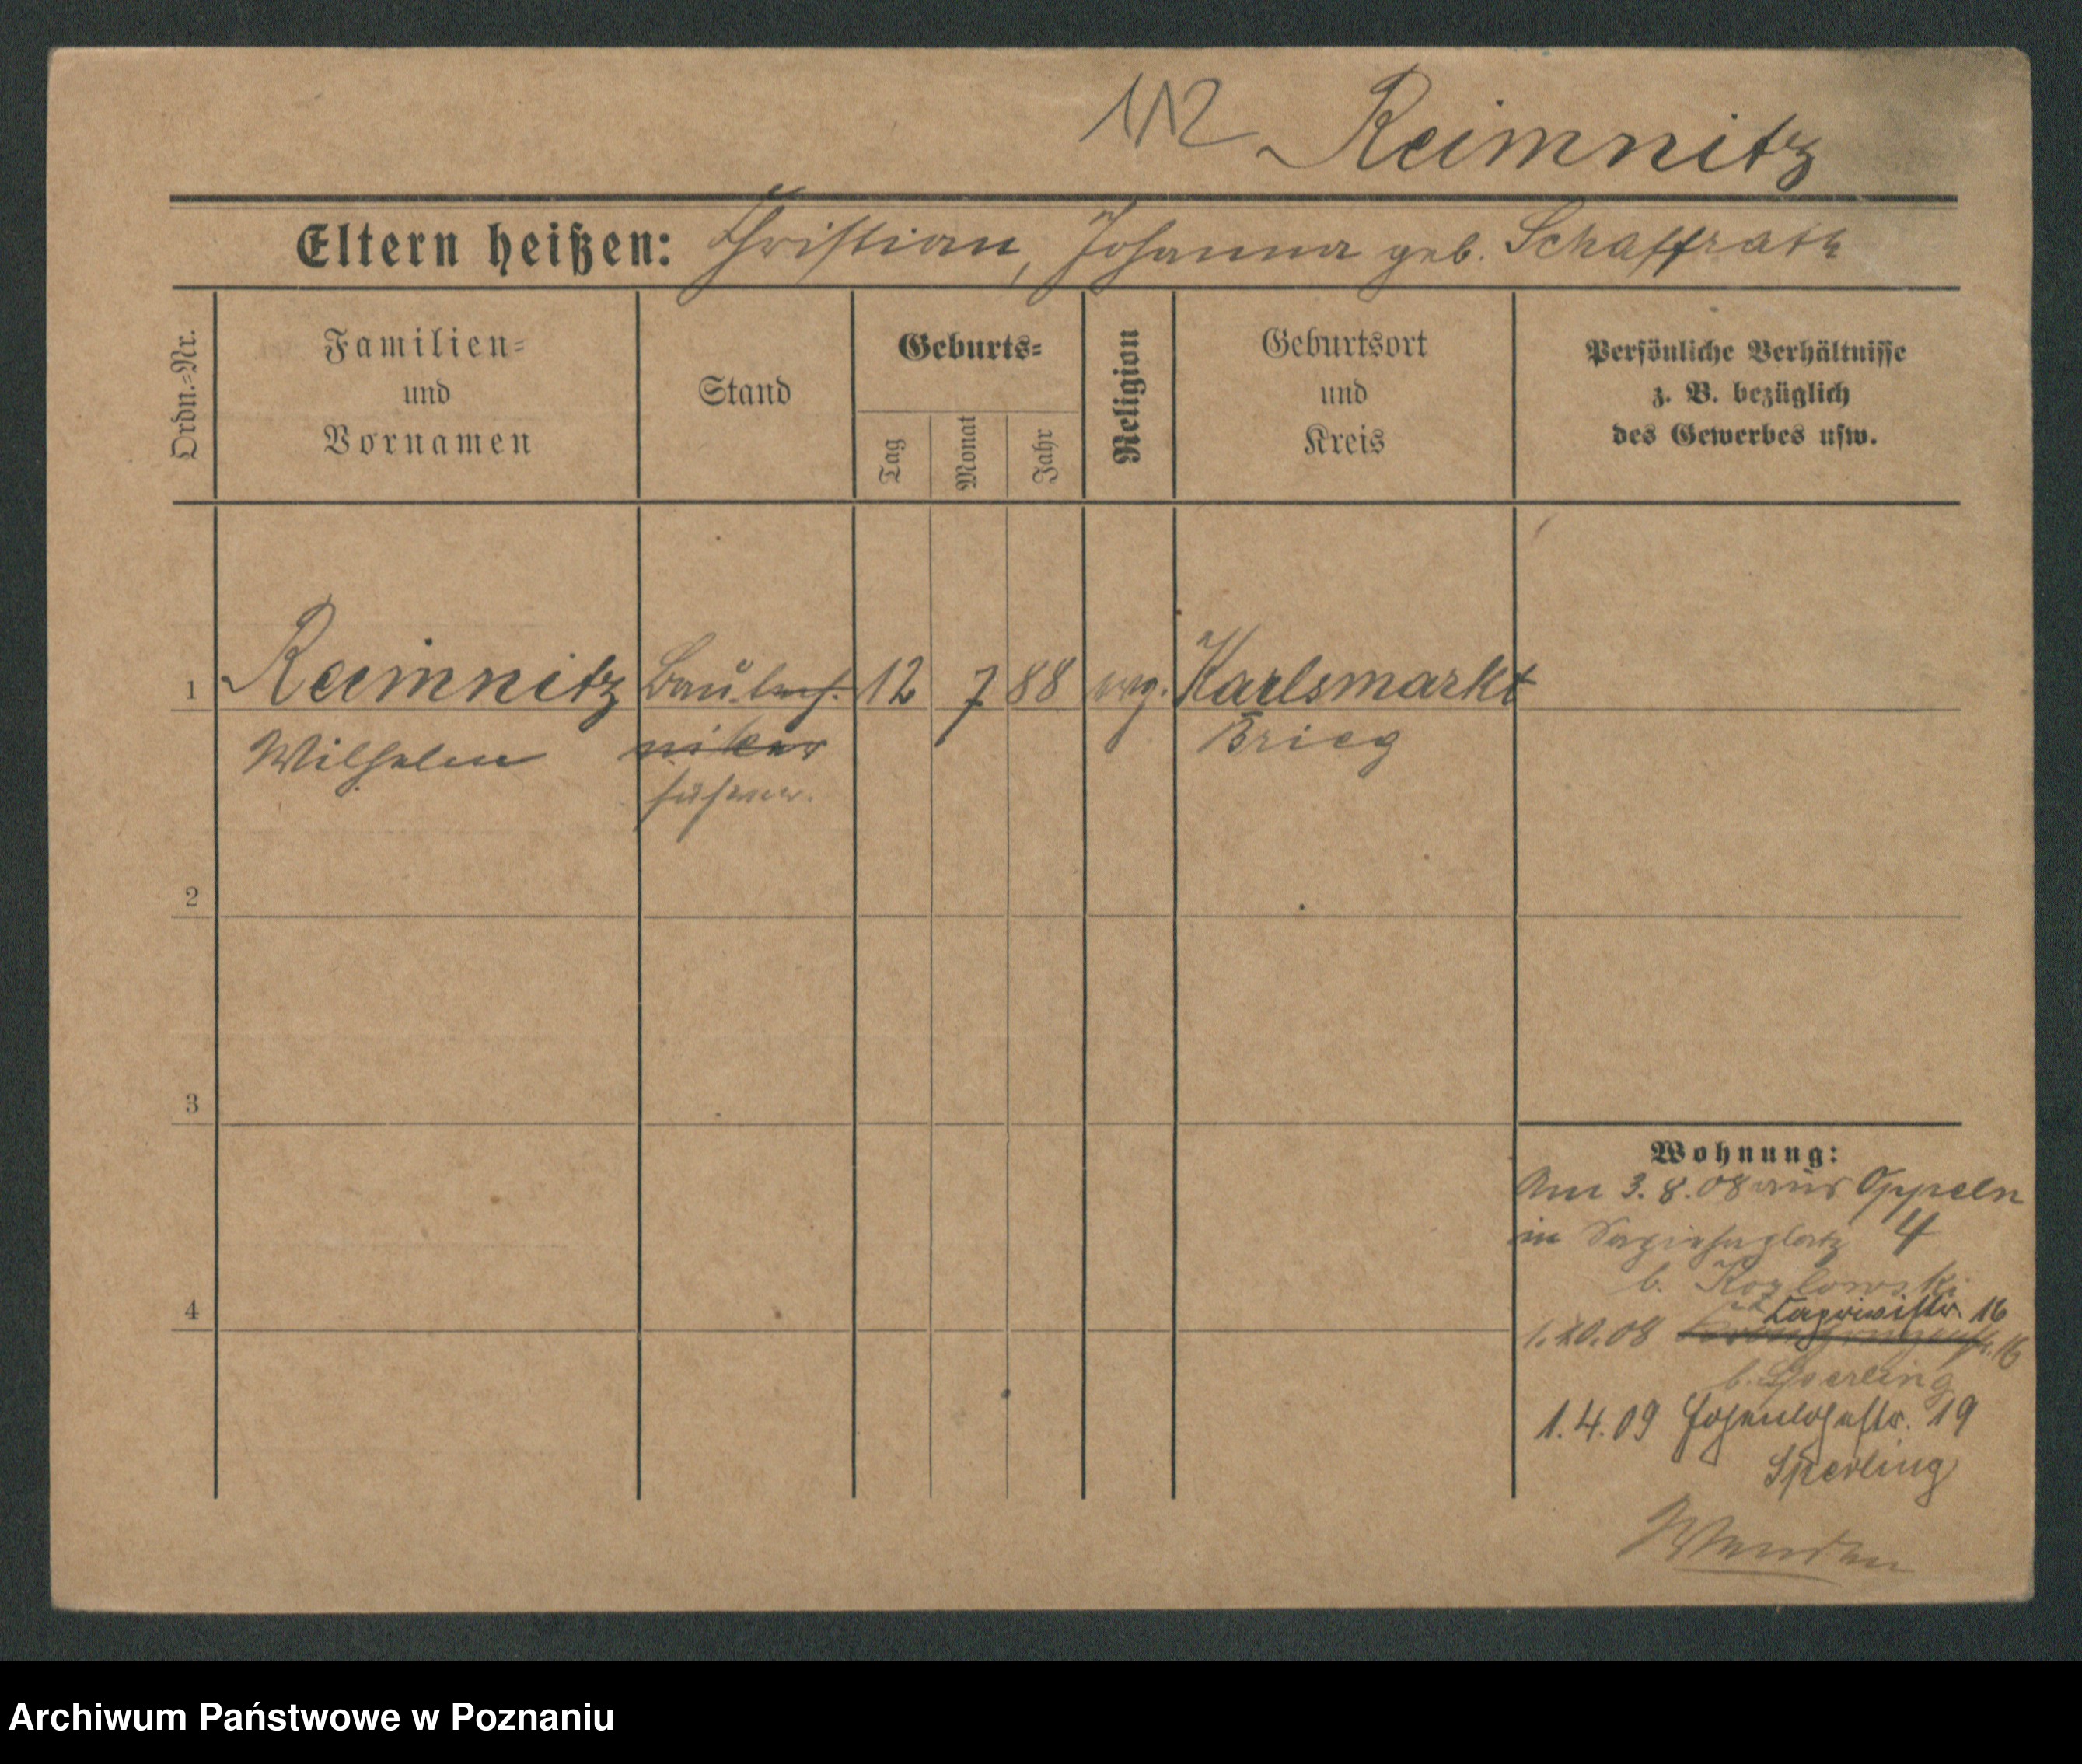 112 Reimnitz
Eltern heißen: Christian, Johanna geb. Schaffrath
Ordn.=Nr.
Familien=
und
Vornamen
Stand
Geburts=
Tag
Monat
Jahr
Religion
Geburtsort
und
Kreis
Persönliche Verhältnisse
z. B. bezüglich
des Gewerbes usw.
1 Reimnitz 12 7 88 evg. Karlsmarkt
Wilhelm Brieg
2
3
4
Wohnung:
Am 3.8.08 aus Oppeln
in Sapiehaplatz 4
b. Kozlowski
Caprivistr. 16
1.10.08 16
b. Sperling
1.4.09 Hohenlohestr. 19
Sperling
Wenden
Archiwum Państwowe w Poznaniu